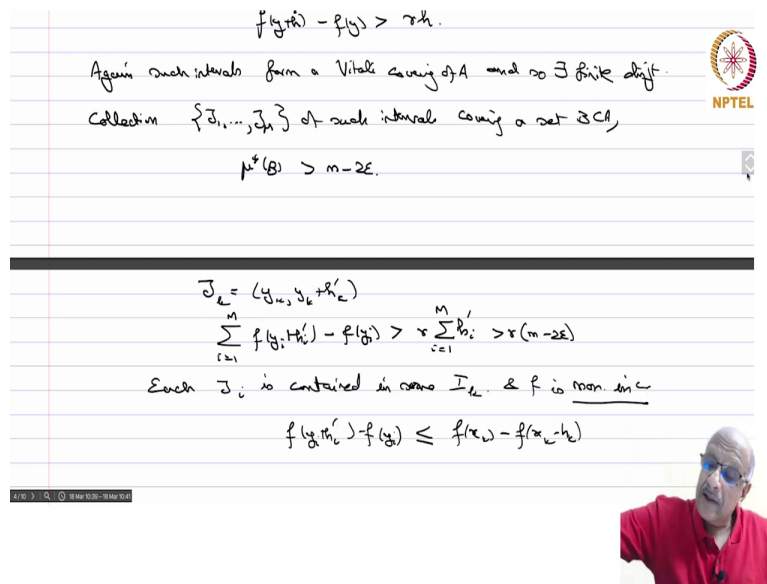 f(y+h) - f(y) > rh.
Again such intervals form a Vitali covering of A and so ∃ finite disjt.
NPTEL
Collection {J₁,...,J_M} of such intervals covering a set B⊂A,
μ*(B) > m-2ε.
J_k = (y_k, y_k+h'_k)
M M
∑ f(y_i+h'_i) - f(y_i) > r ∑ h'_i > r(m-2ε)
i=1 i=1
Each J_i is contained in some I_k. & f is mon. inc
f(y_i+h'_i) - f(y_i) ≤ f(x_k) - f(x_k-h_k)
4 / 10 18 Mar 10:39 - 18 Mar 10:41